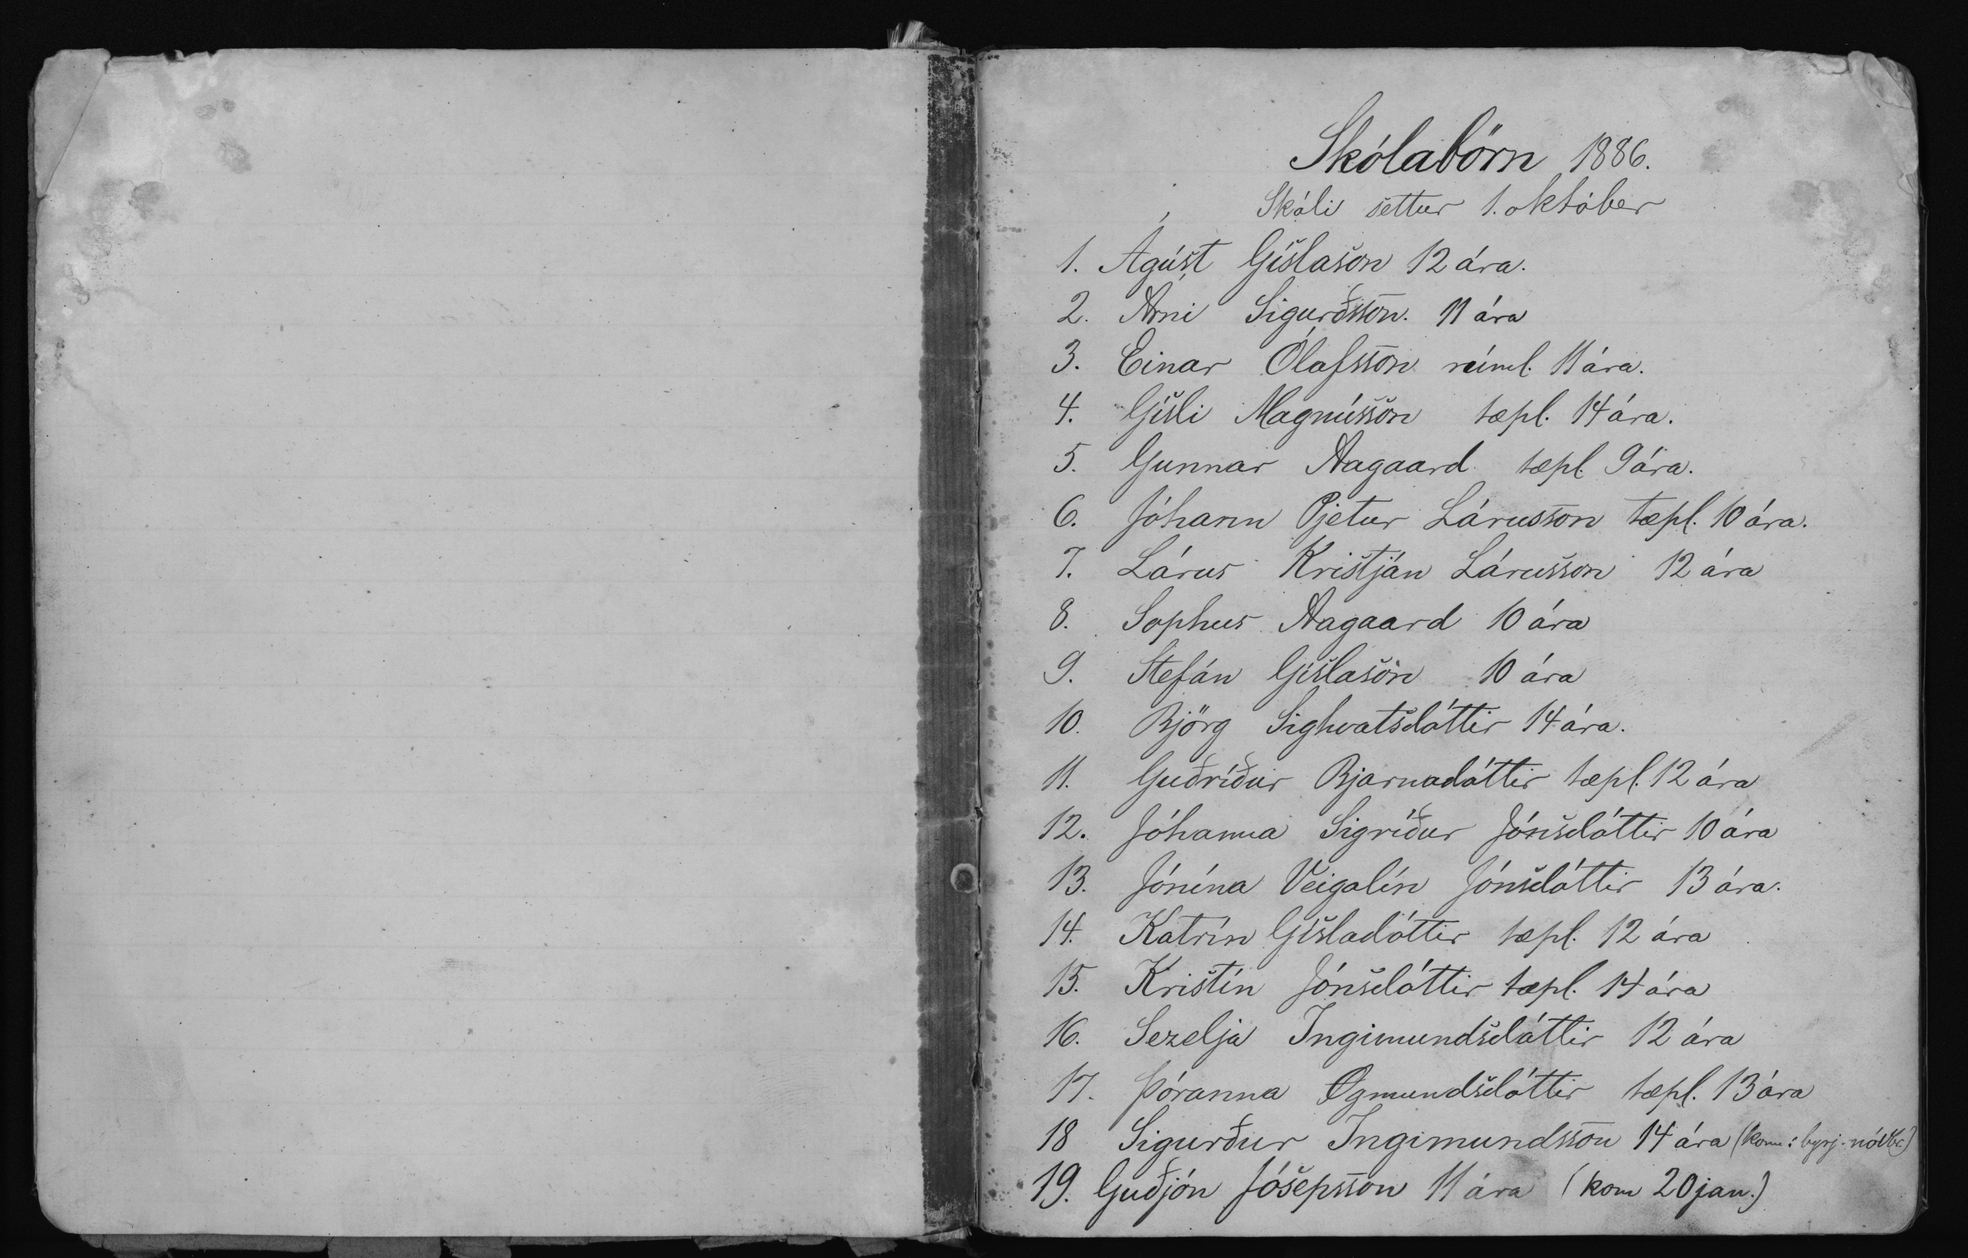 Skólabörn 1886.
Skóli settur 1. október
1. Ágúst Gíslason 12 ára.
2. Árni Sigurðsson. 11 ára
3. Einar Ólafsson rúml. 11 ára.
4. Gísli Magnússon tæpl. 14 ára.
5. Gunnar Aagaard tæpl. 9 ára.
6. Jóhann Pjetur Lárusson tæpl. 10 ára.
7. Lárus Kristján Lárusson 12 ára
8. Sophus Aagaard 10 ára
9. Stefán Gíslason 10 ára
10. Björg Sighvatsdóttir 14 ára.
11. Guðríður Bjarnadóttir tæpl. 12 ára
12. Jóhanna Sigríður Jónsdóttir 10 ára
13. Jónína Veigalín Jónsdóttir 13 ára.
14. Katrín Gísladóttir tæpl. 12 ára
15. Kristín Jónsdóttir tæpl. 14 ára
16. Sezelja Ingimundsdóttir 12 ára
17. Þóranna Ögmundsdóttir tæpl. 13 ára
18 Sigurður Ingimundsson 14 ára (kom: byrj. nóvbr)
19. Guðjón Jósepsson 11 ára (kom 20 jan.)